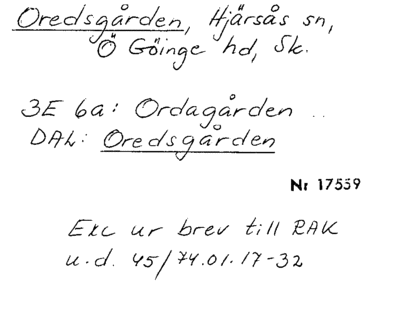 Oredsgården, Hjärsås sn,
Ö Göinge hd, Sk.
3E 6a: Ordagården ..
DAL: Oredsgården
Nr 17559
Exc ur brev till RAK
u.d. 45/74.01.17-32